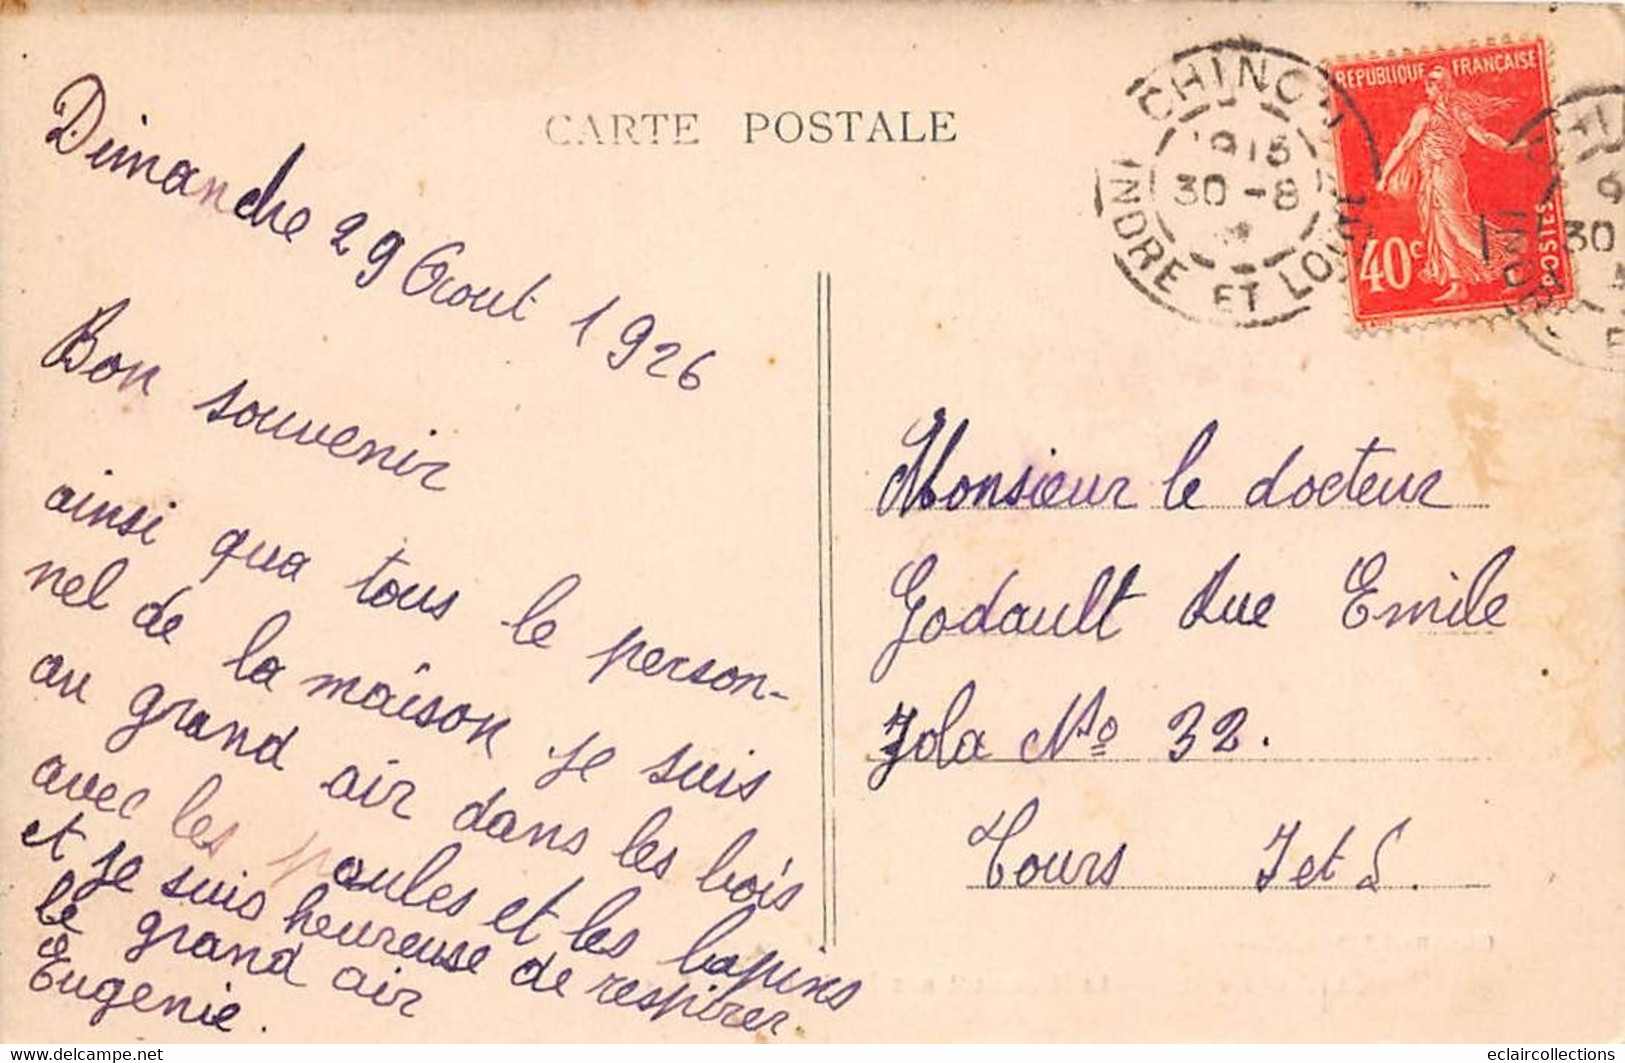 CARTE POSTALE
Dimanche 29 Aout 1926
Bon souvenir
ainsi qua tous le person-
nel de la maison je suis
au grand air dans les bois
avec les poules et les lapins
et je suis heureuse de respirer
le grand air
Eugenie.
CHINON
30-8
INDRE ET LOIRE
REPUBLIQUE FRANÇAISE
POSTES
40c
30
Monsieur le docteur
Godault Rue Emile
Zola No 32.
Tours I et L.
www.delcampe.net
eclaircollections